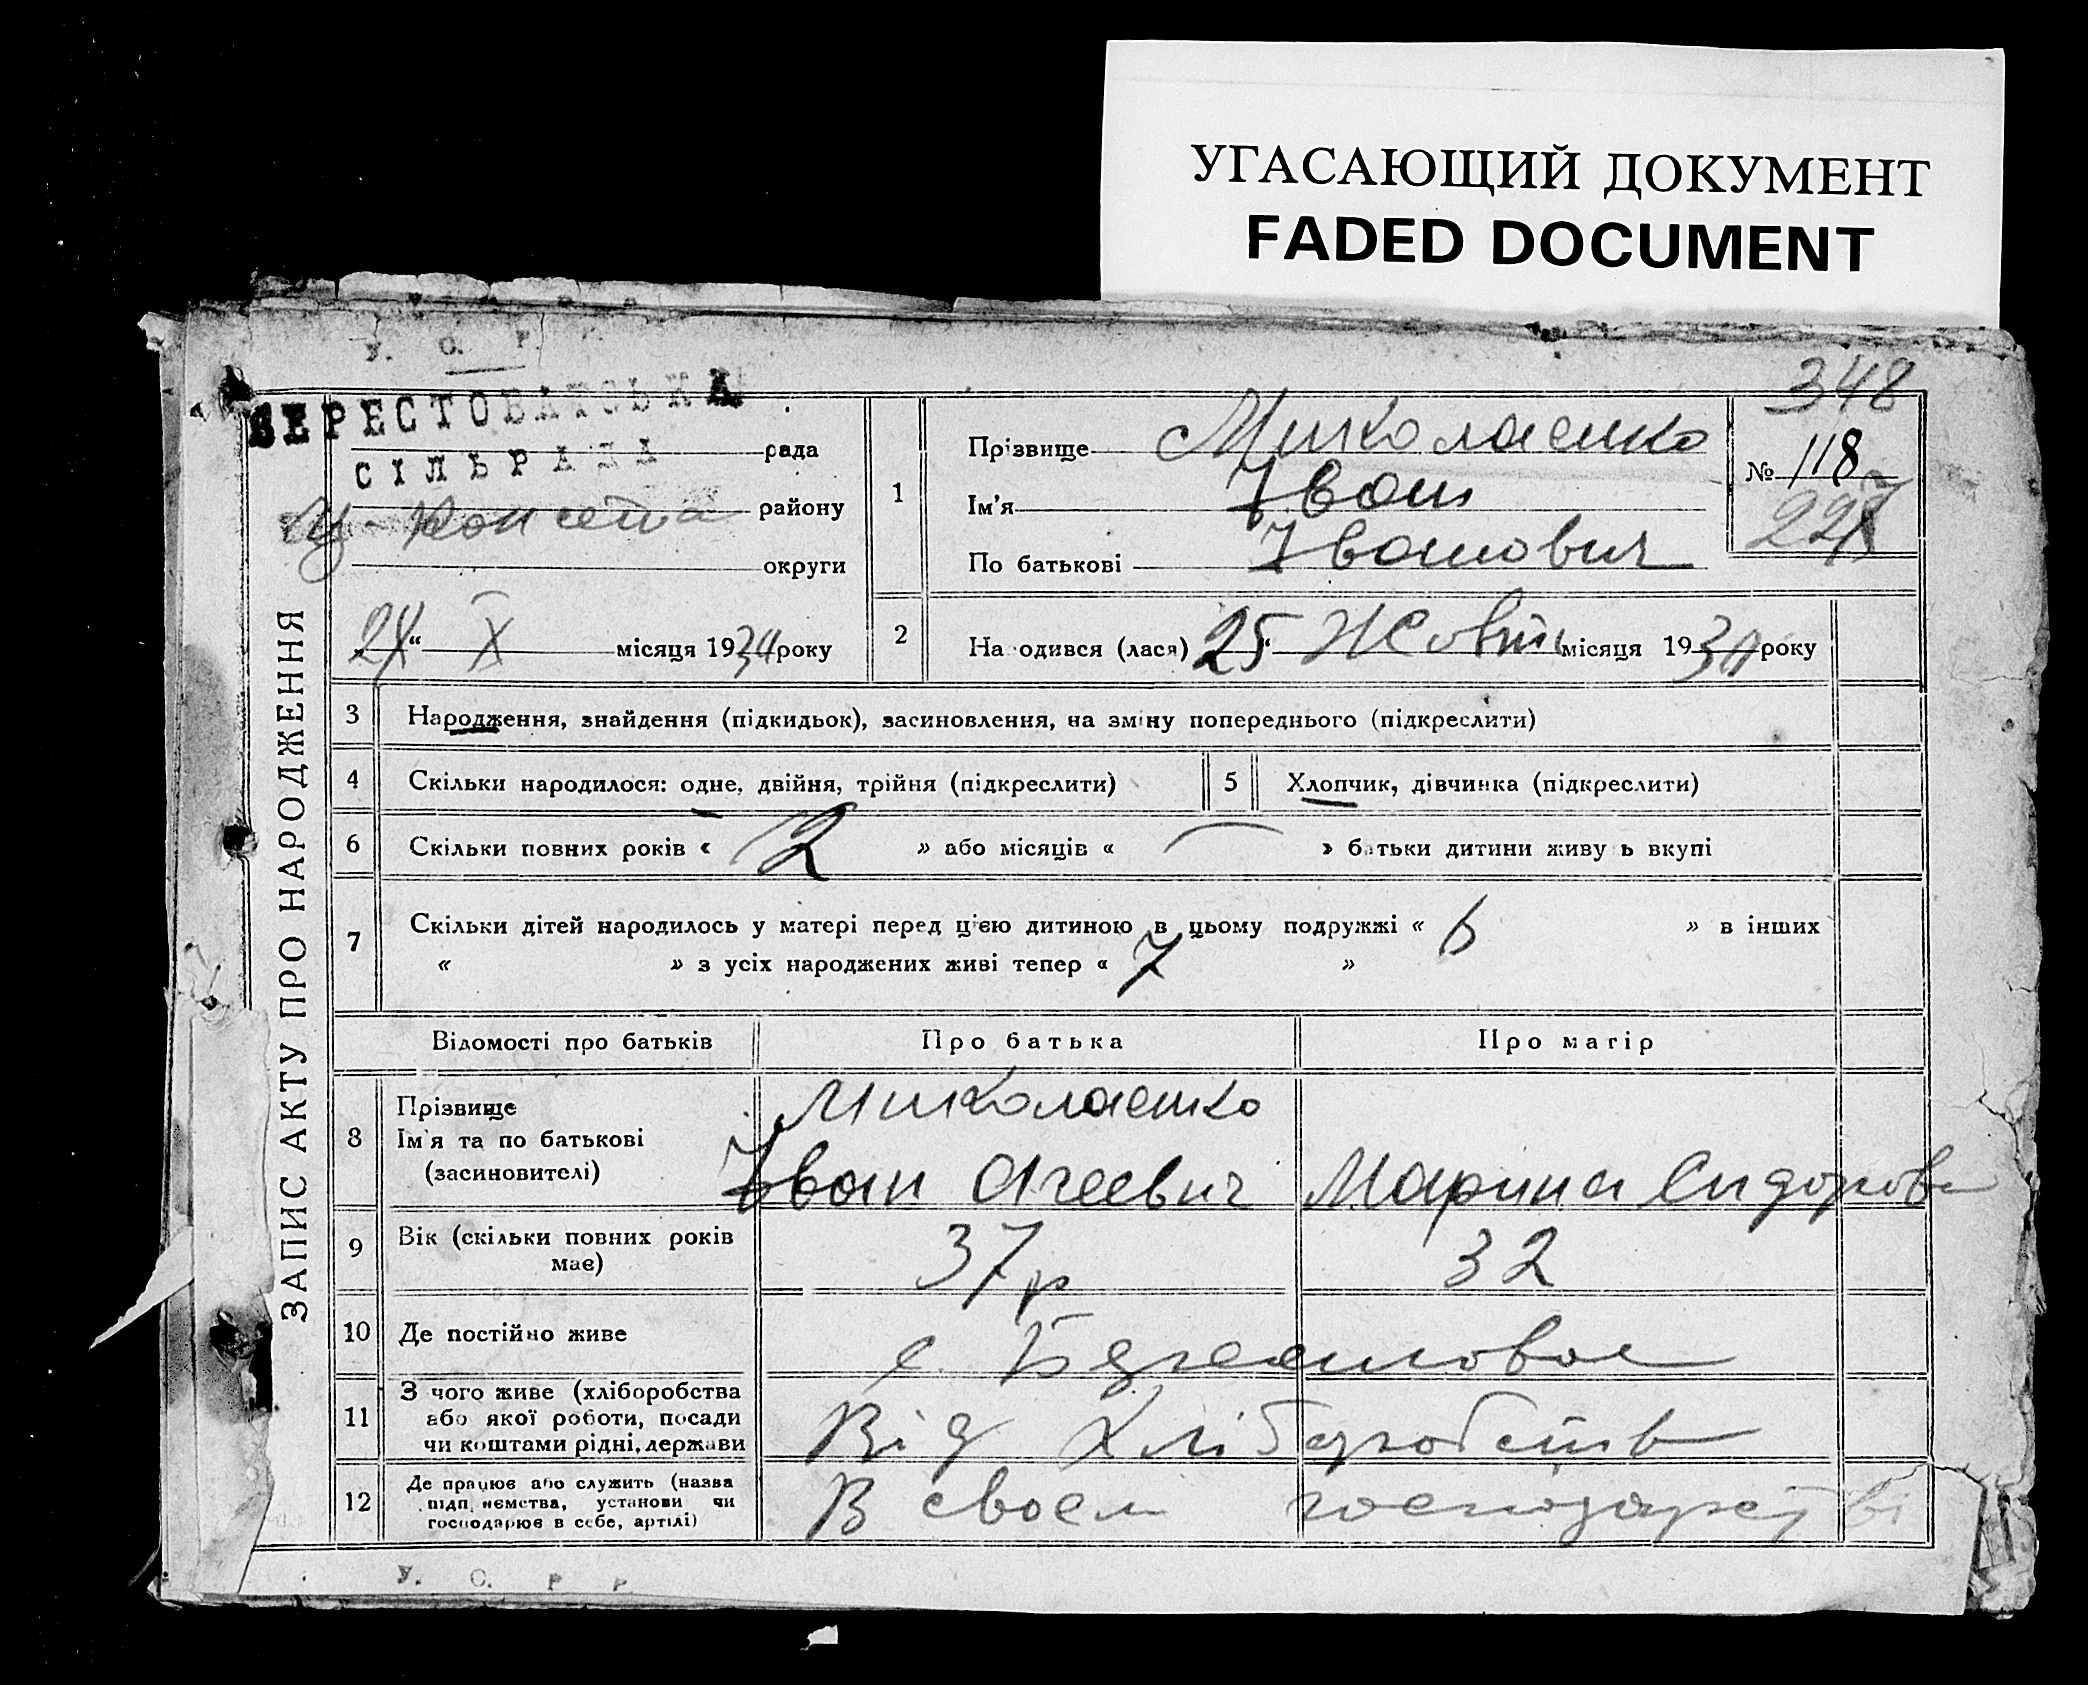 УГАСАЮЩИЙ ДОКУМЕНТ
FADED DOCUMENT
У. С. Р.
348
БЕРЕСТОВАТСЬКА
СІЛЬРАДА рада
району
округи
1
Прізвище Миколаенко
Ім'я Іван
По батькові Іванович
№ 118
227
Х місяця 1930 року
2
На одився (лася) 25 " Жовтн місяця 1930 року
3 Народження, знайдення (підкидьок), засиновлення, на зміну попереднього (підкреслити)
4 Скільки народилося: одне, двійня, трійня (підкреслити) 5 Хлопчик, дівчинка (підкреслити)
6 Скільки повних років « 2 » або місяців « — » батьки дитини живу ь вкупі
7 Скільки дітей народилось у матері перед цією дитиною в цьому подружжі « 6 » в інших
« » з усіх народжених живі тепер « 7 »
Відомості про батьків Про батька Про матір
8 Прізвище
Ім'я та по батькові
(засиновителі)
Миколаенко
Іван Агеевич Марина Сидоров
9 Вік (скільки повних років має) 37 р 32
10 Де постійно живе с. Берестовое
11 З чого живе (хліборобства
або якої роботи, посади
чи коштами рідні, держави
Від Хліборобств
12 Де працює або служить (назва
підп иємства, установи чи
господарює в себе, артілі)
В своем господарстві
ЗАПИС АКТУ ПРО НАРОДЖЕННЯ
У. С. Р. Р.